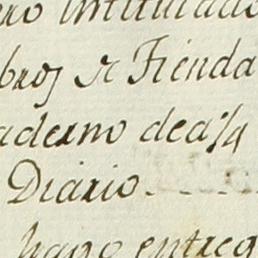 ro intitulado
bros de Tienda
aderno de a 1/4
Diario.
hago entreg